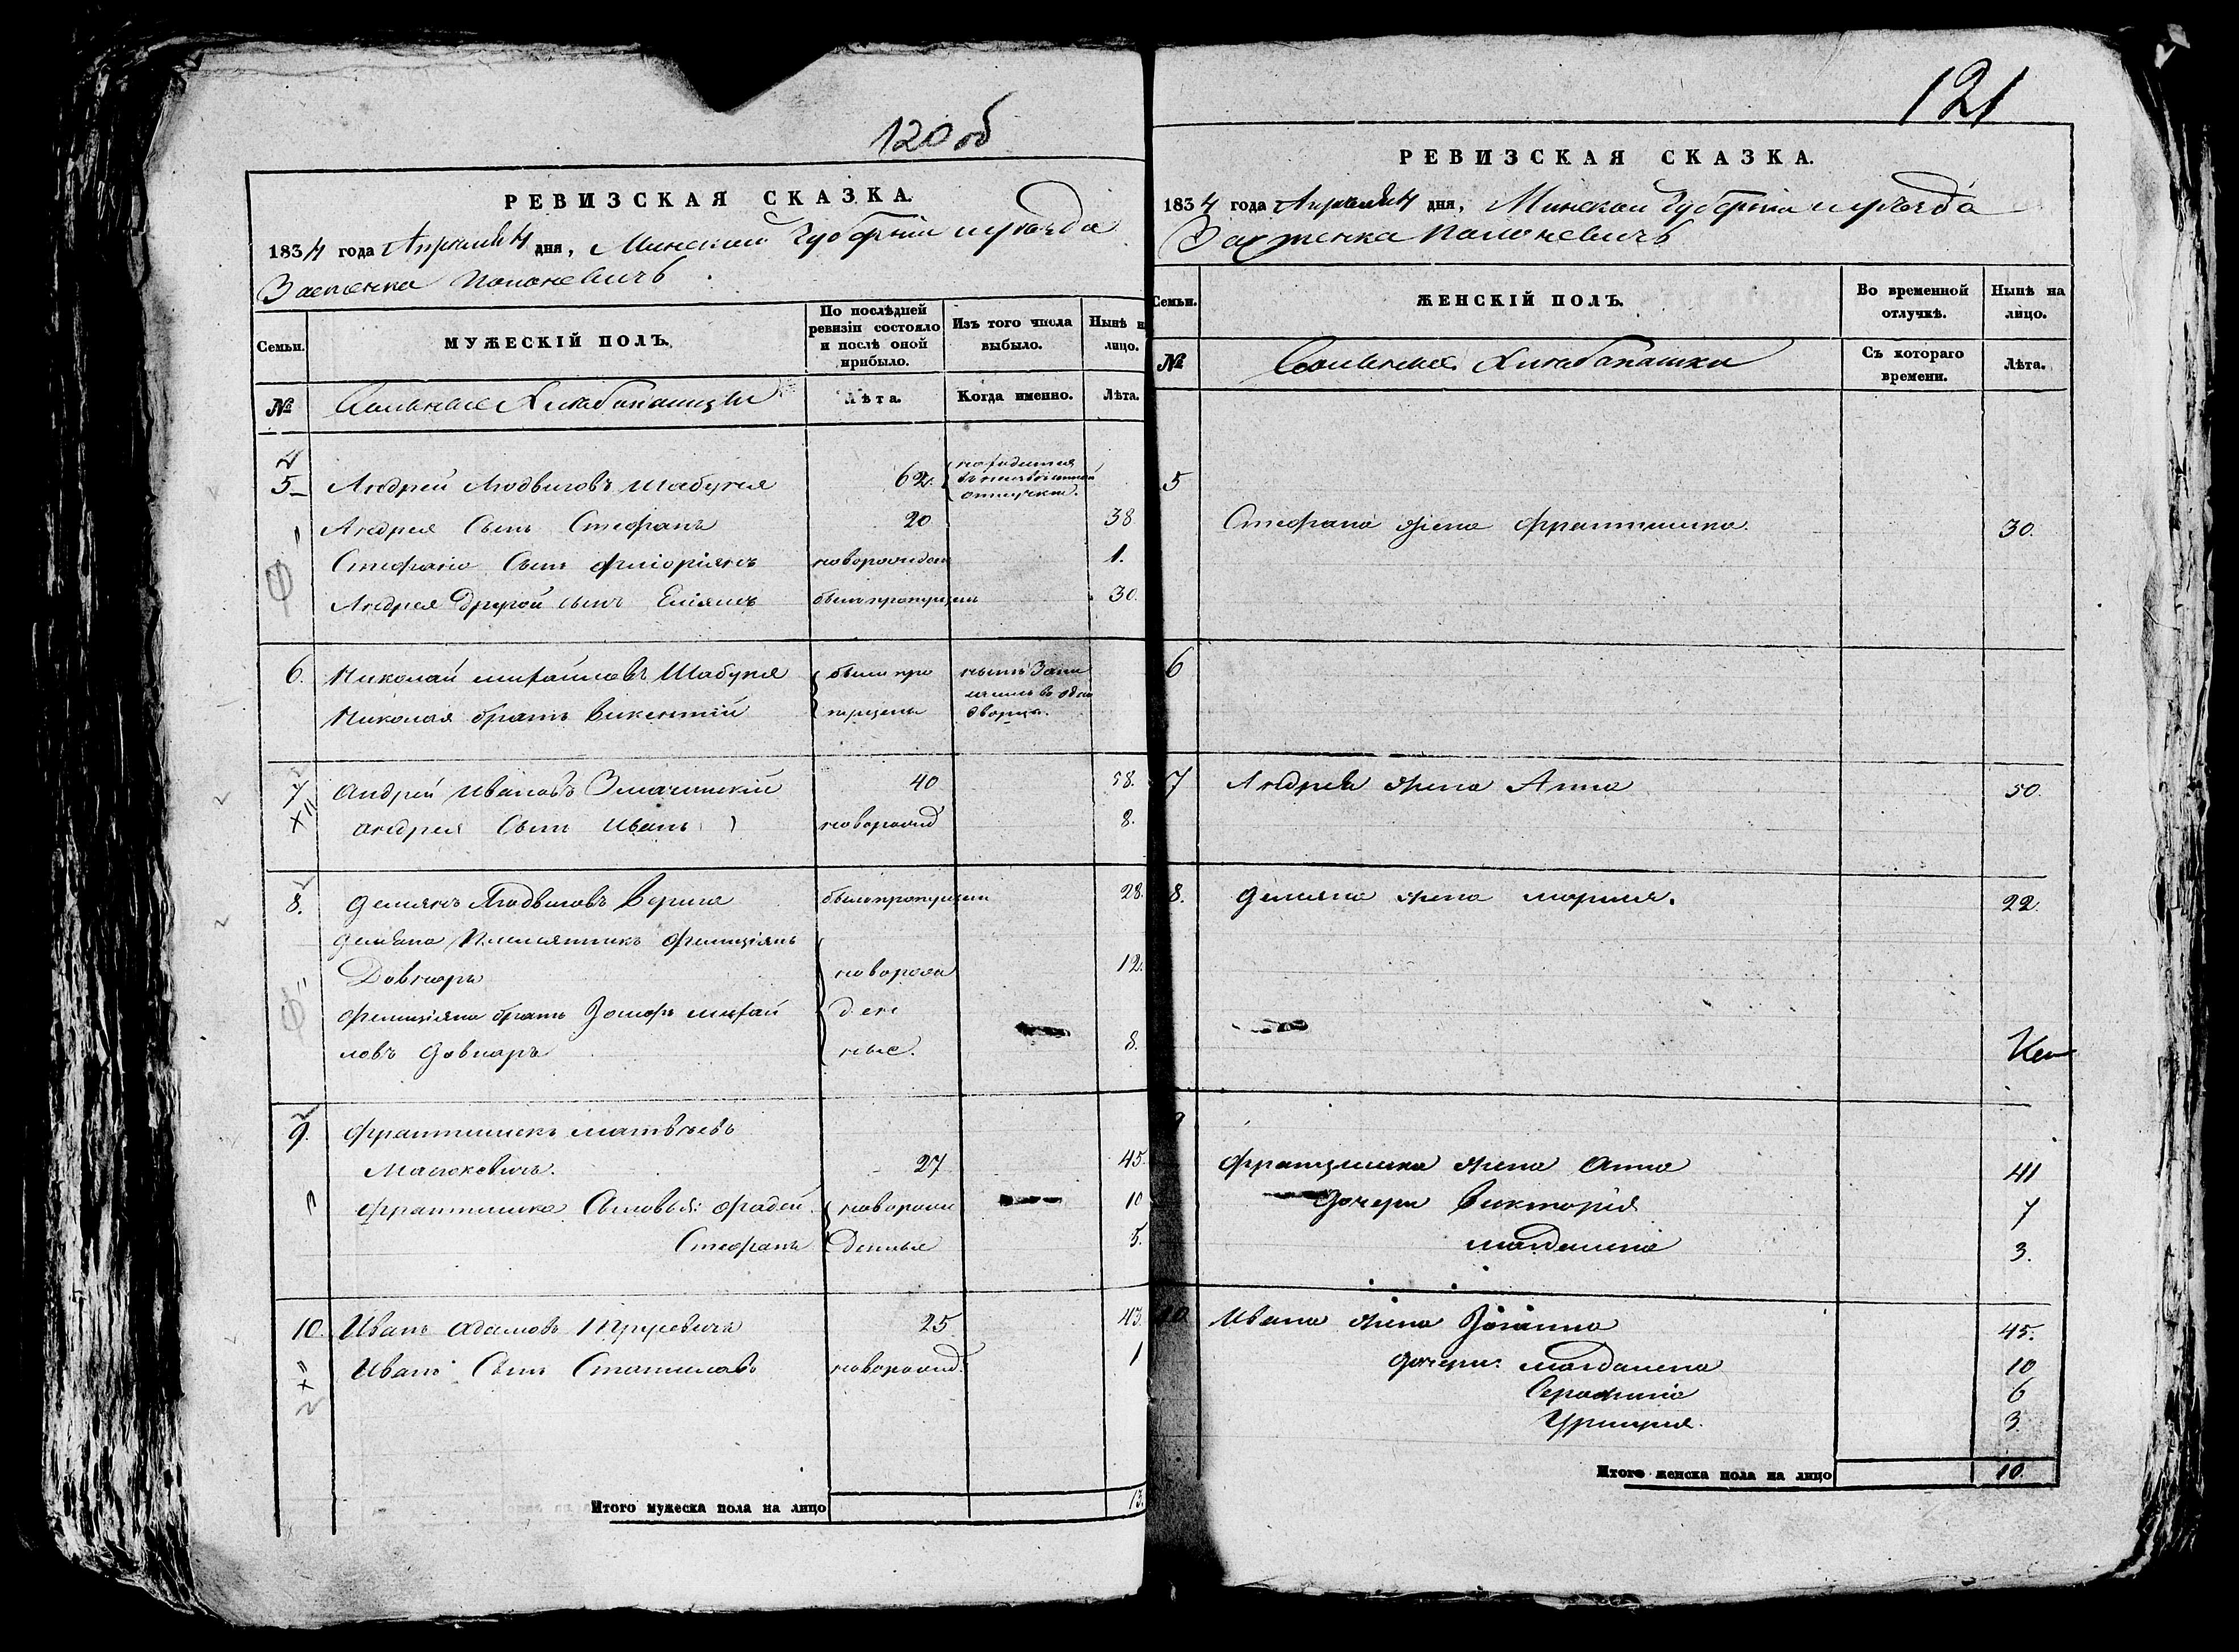 120 об
РЕВИЗСКАЯ СКАЗКА.
1834 года Апреля 4 дня, Минской Губерніи и уезда
Застенка
Семьи.
МУЖЕСКІЙ ПОЛЪ.
По послѣдней ревизіи состояло и послѣ оной прибыло.
Изъ того числа выбыло.
Нынѣ н лицо.
№
Вольные Хлебопашцы
Лѣта.
Когда именно.
Лѣта.
4
5 Андрей Людвиговъ Шабуня 62 находится в отлучки.
Андрея Сынъ Стефанъ 20 38
Стефана Сынъ Флоріянъ новорожден 1.
Андрея другой сынъ былъ пропущен 30.
6. Николай Михайловъ Шабуня были про
Николая братъ Викентий пущены дворцы.
7 Андрей Ивановъ 40 58.
Андрея Сынъ Иванъ новорожд 8.
8. Демянъ Людвиговъ Верига былъ пропущен 28.
Демяна Племянникъ Фелиціянъ
Довнаръ новорож 12.
Фелиціяна братъ Іосифъ Михай ден
ловъ Довнаръ ные. 8.
9. Франтишекъ Матвѣевъ
27 45.
Франтишка Сыновья: Фадей новорож 10
Стефанъ денные 5.
10. Иванъ Адамовъ 25 43.
Ивана Сынъ Станиславъ новорожд. 1
Итого мужеска пола на лицо 13.
121
РЕВИЗСКАЯ СКАЗКА.
1834 года Апреля 4 дня, Минской Губерніи и уезда
Застенка
Семьи.
ЖЕНСКІЙ ПОЛЪ.
Во временной отлучкѣ.
Нынѣ на лицо.
№
Вольные Хлебопашки
Съ котораго времени.
Лѣта.
5
Стефана жена Франтишка. 30.
6
7 Андрея жена Анна 50.
8. Демяна жена Марыя. 22.
9
Францишка жена Анна 41
Дочери Викторія 7
Магдалена 3.
10 Ивана жена Іоанна 45.
Дочери: Магдалена 10
6
Уршуля. 3.
Итого женска пола на лицо 10.